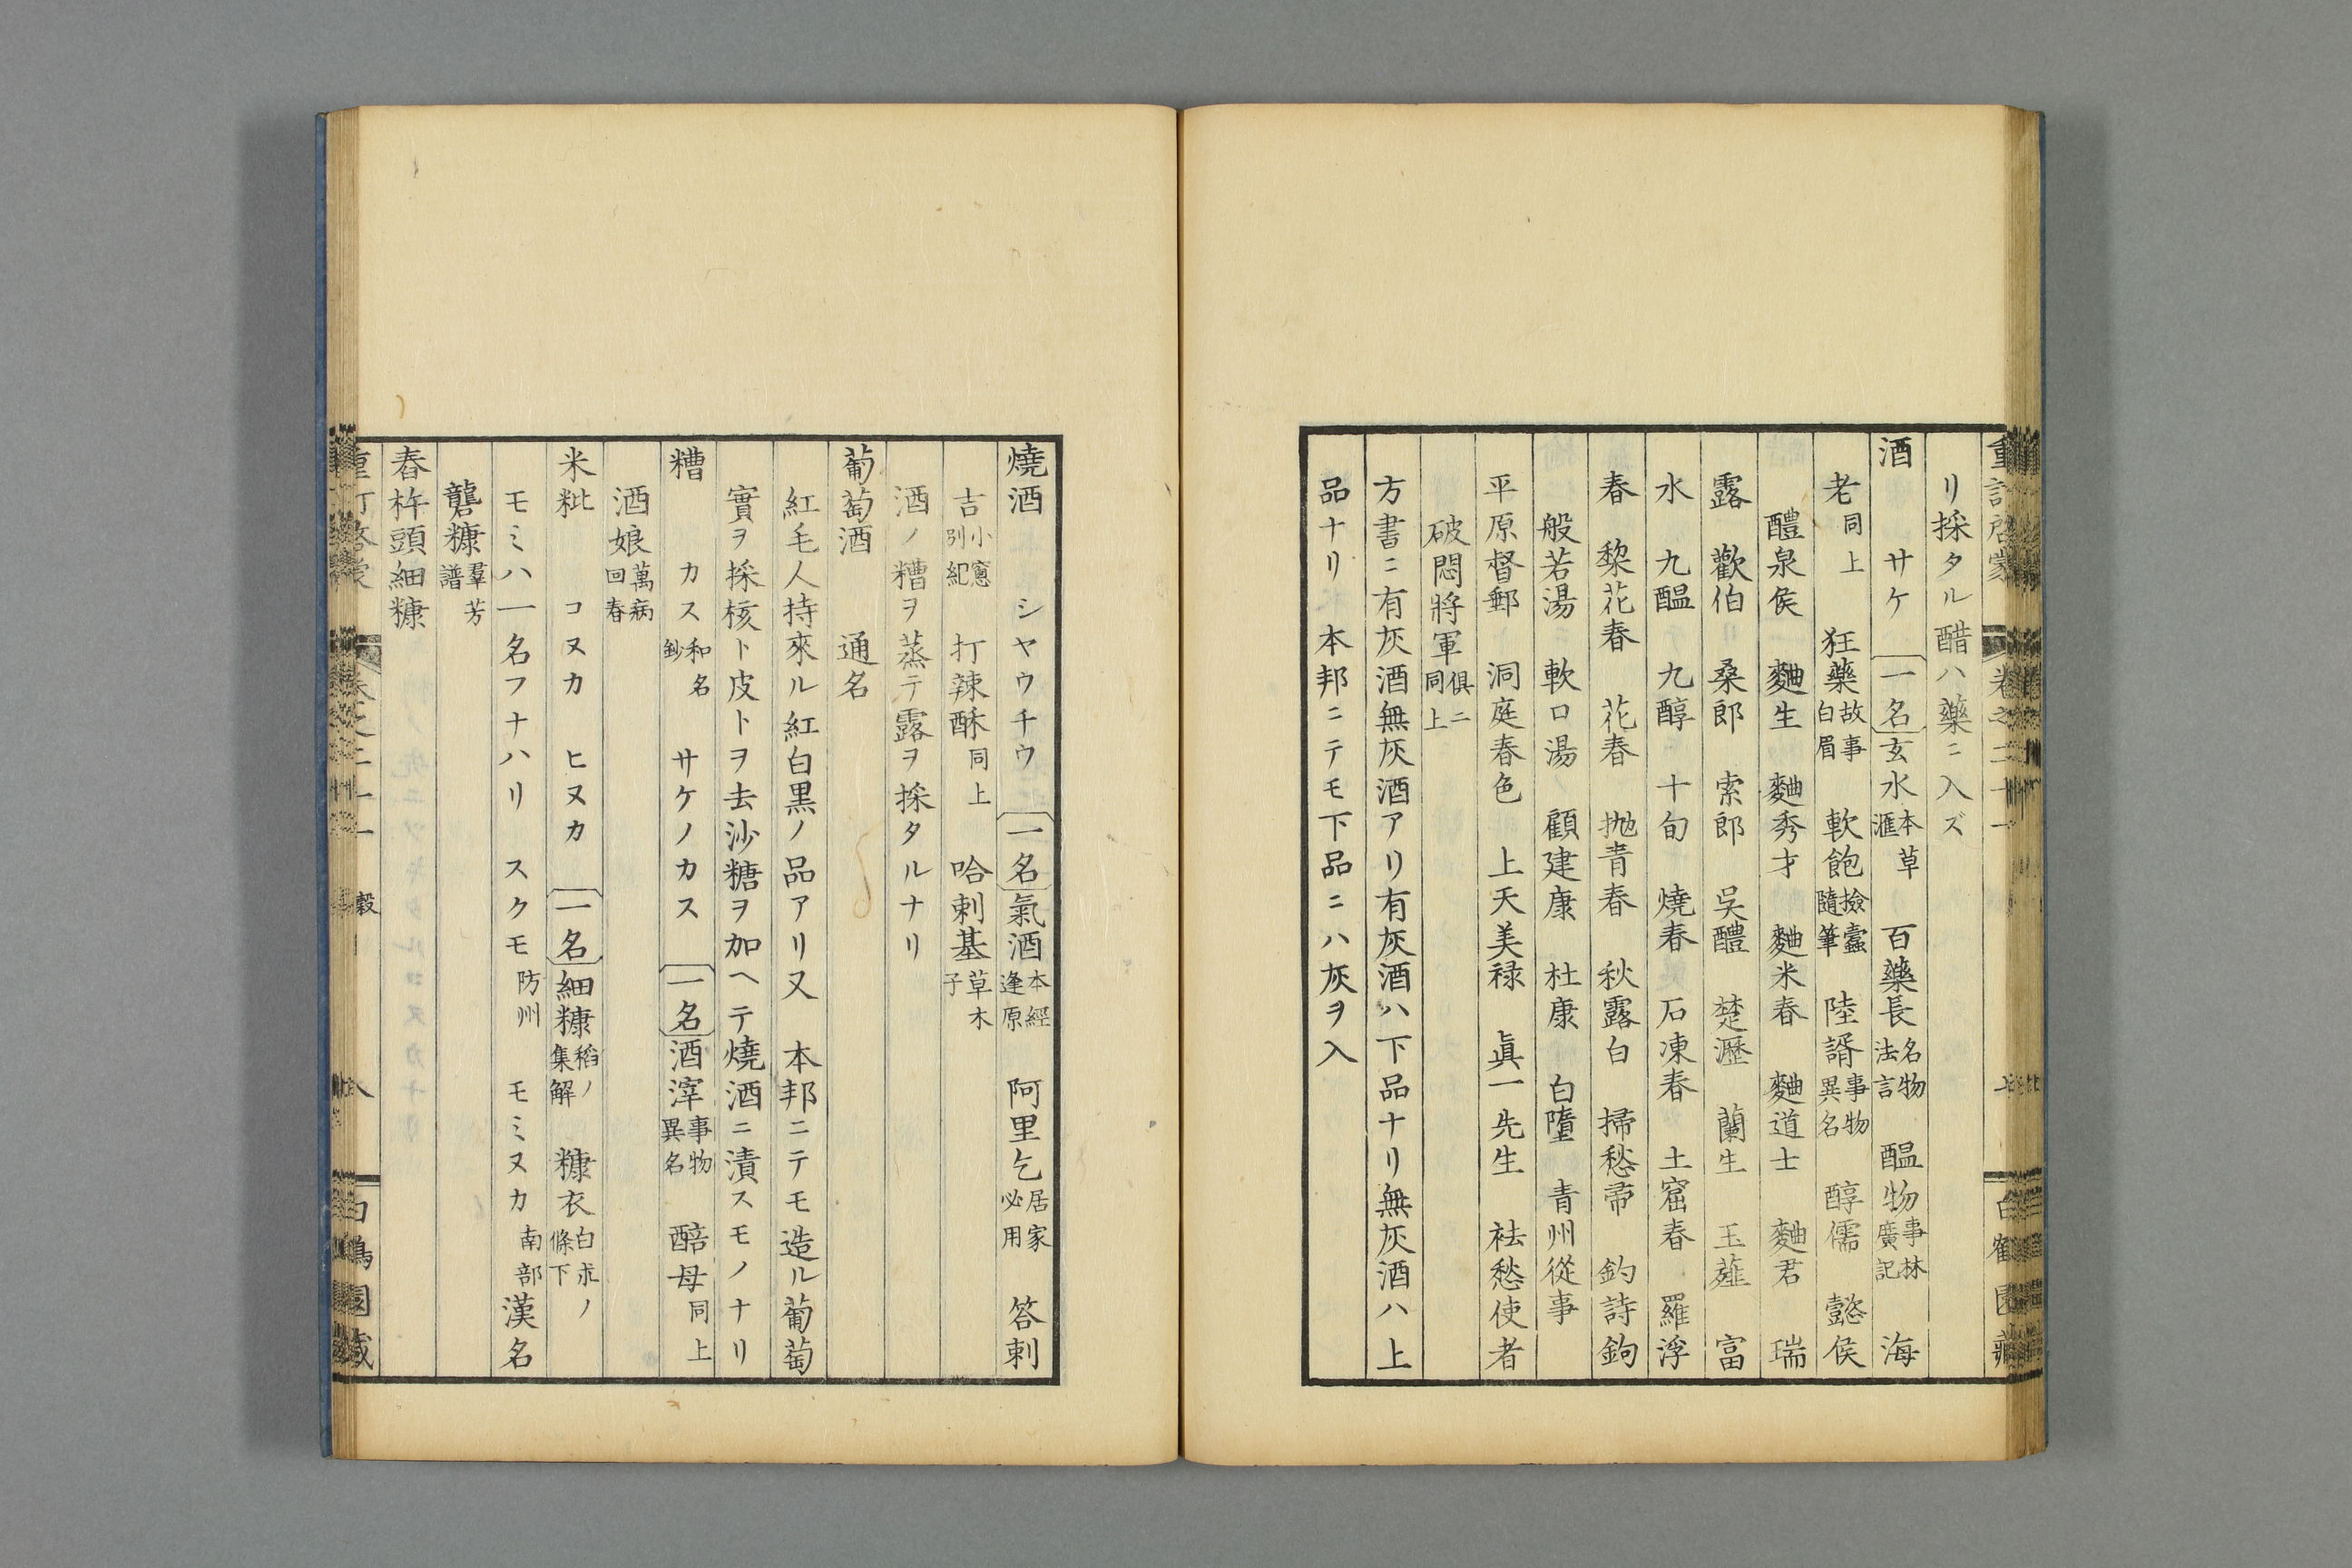 リ採タル醋ハ藥ニ入ズ
酒 サケ 一名 玄水本草滙 百藥長名物法言 醞物事林廣記 海
老同上 狂藥故事白眉 軟飽撿蠧隨筆 陸諝事物異名 醇儒 懿侯
醴泉侯 麯生 麯秀才 麯米春 麯道士 麯君 瑞
露 歡伯 桑郎 索郎 吳醴 楚瀝 蘭生 玉薤 富
水 九醞 九醇 十旬 燒春 石凍春 土窟春 羅浮
春 黎花春 花春 抛青春 秋露白 掃愁帚 釣詩鉤
般若湯 軟口湯 顧建康 杜康 白墮 青州從事
平原督郵 洞庭春色 上天美禄 眞一先生 袪愁使者
破悶將軍俱ニ同上
方書ニ有灰酒無灰酒アリ有灰酒ハ下品ナリ無灰酒ハ上
品ナリ 本邦ニテモ下品ニハ灰ヲ入
燒酒 シヤウチウ 一名 氣酒本經逢原 阿里乞居家必用 答剌
吉小窻別紀 打辣酥同上 哈剌基草木子
酒ノ糟ヲ蒸テ露ヲ採タルナリ
葡萄酒 通名
紅毛人持來ル紅白黒ノ品アリ又 本邦ニテモ造ル葡萄
實ヲ採核ト皮トヲ去沙糖ヲ加ヘテ燒酒ニ漬スモノナリ
糟 カス和名鈔 サケノカス 一名 酒滓事物異名 醅母同上
酒娘萬病回春
米粃 コヌカ ヒヌカ 一名 細糠稻ノ集解 糠衣白朮ノ條下
モミハ一名フナハリ スクモ防州 モミヌカ南部 漢名
礱糠羣芳譜
舂杵頭細糠